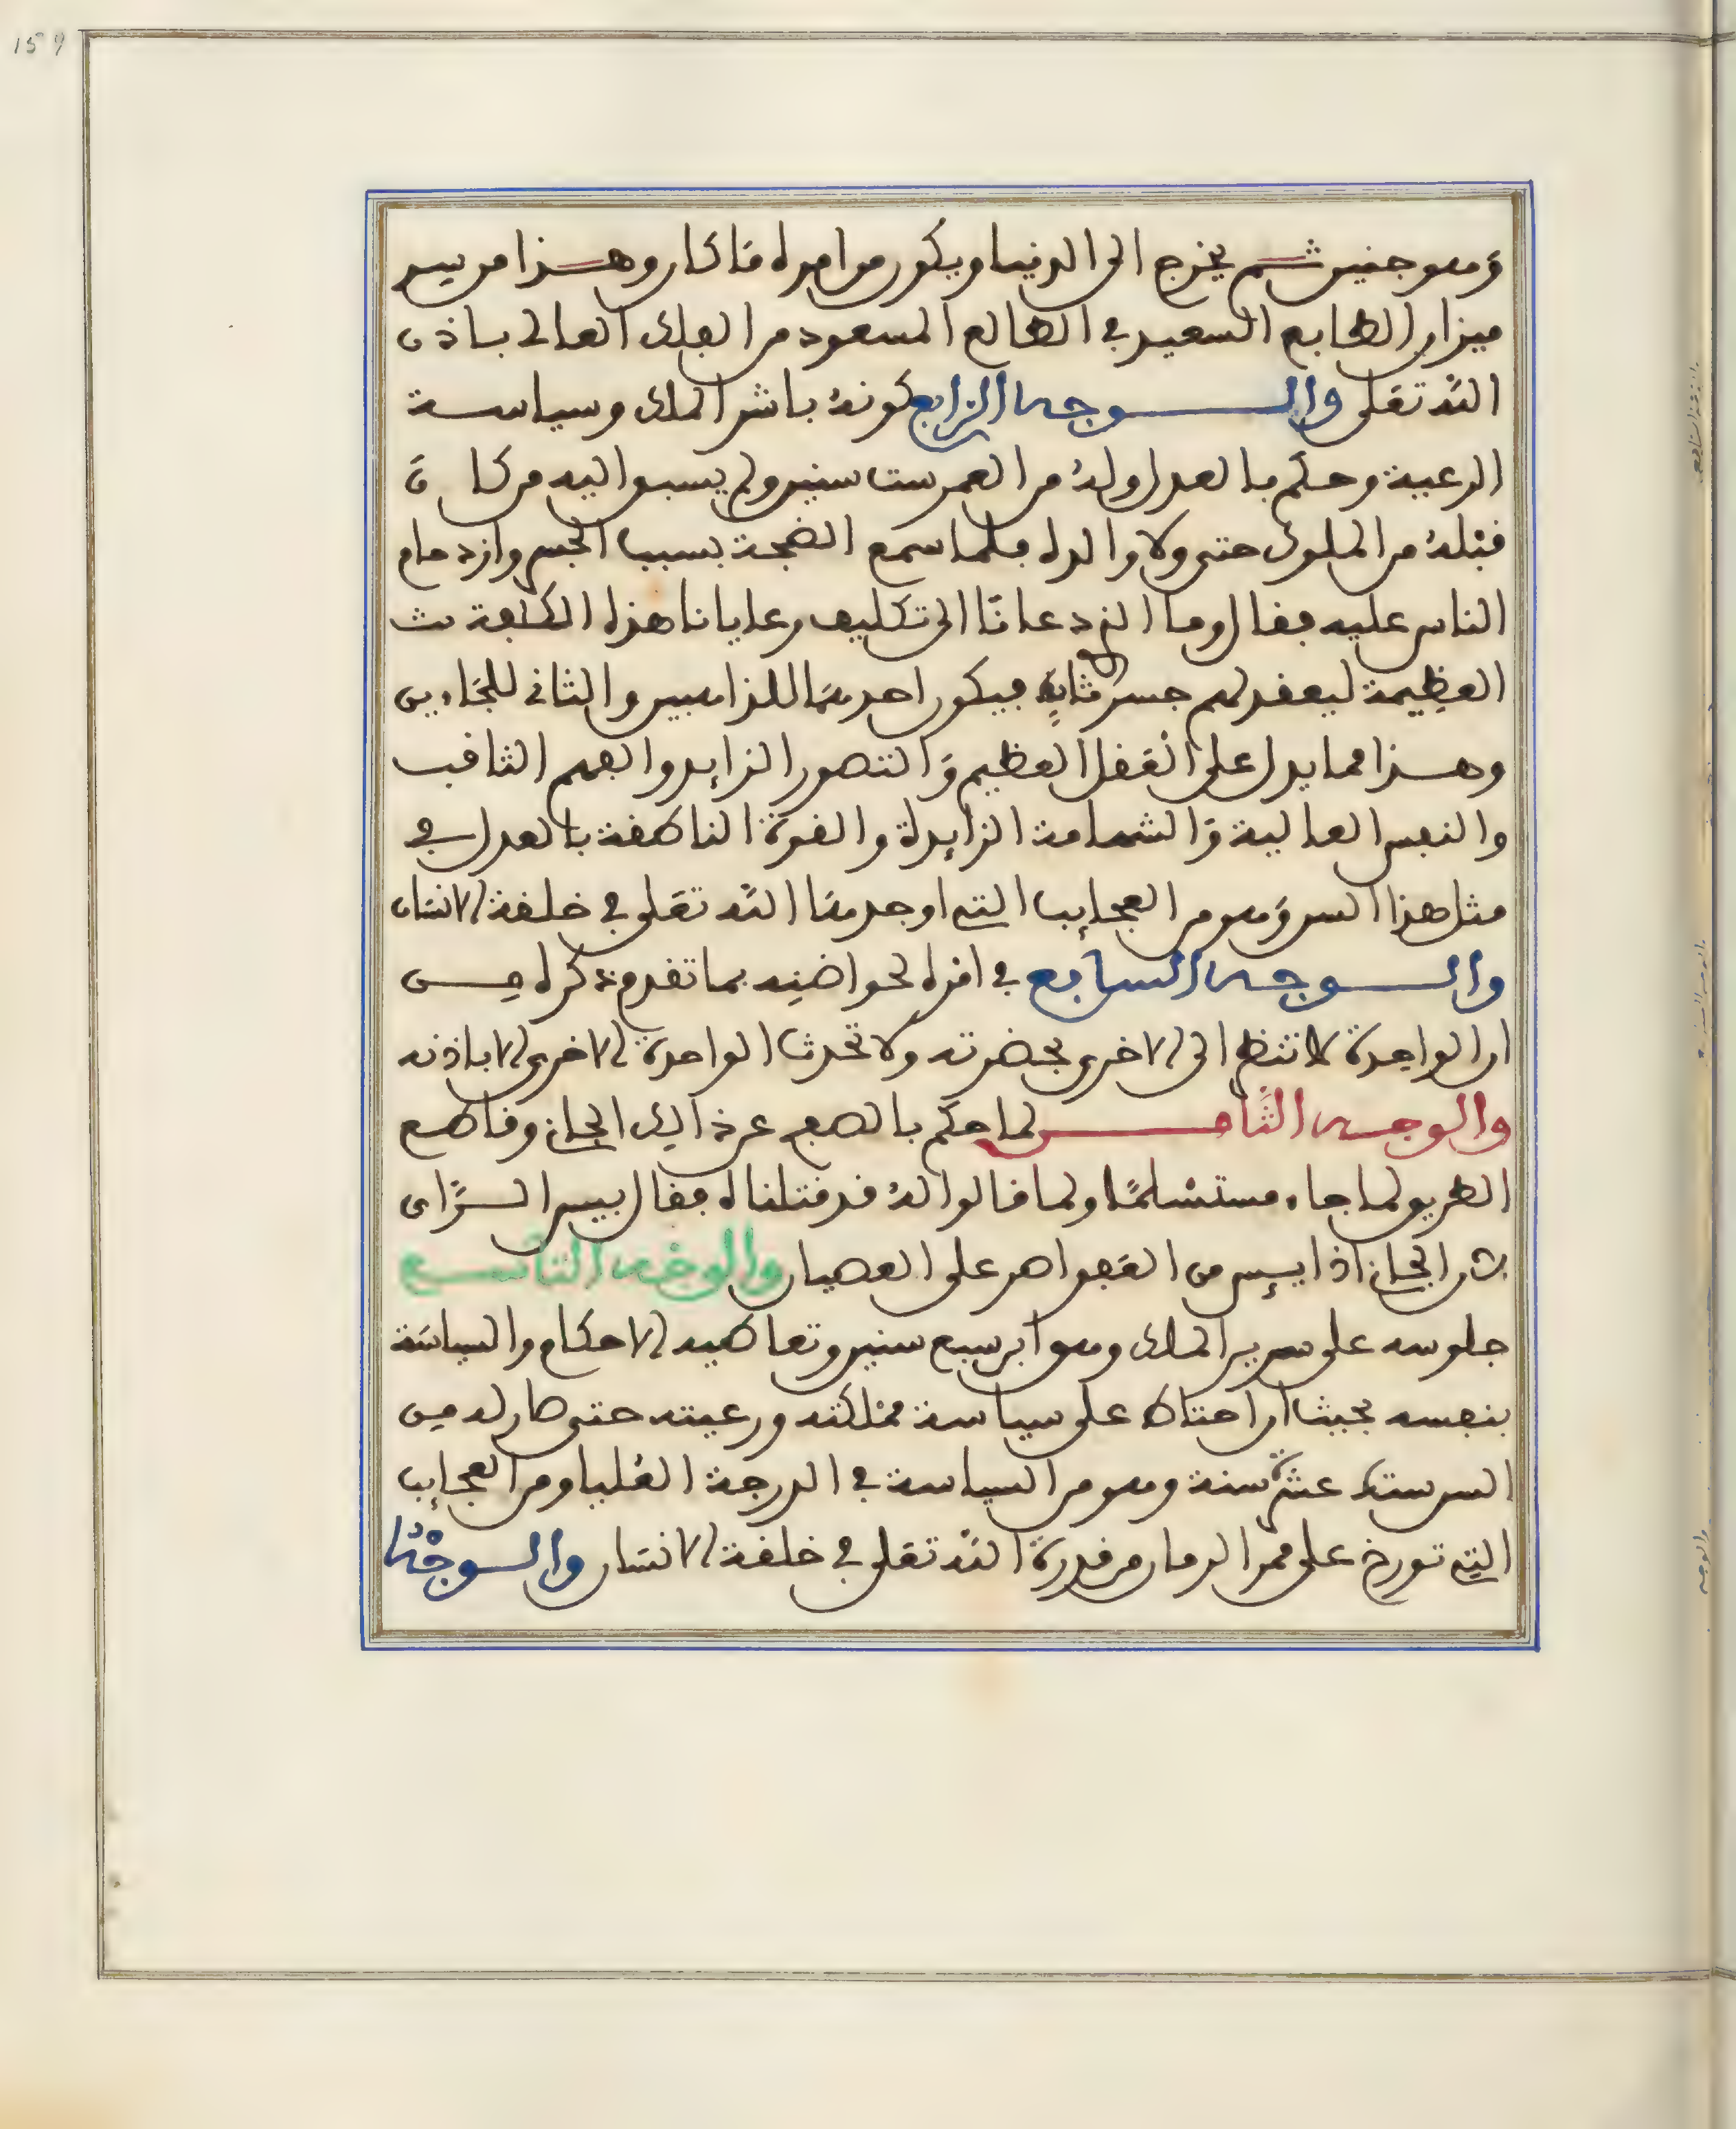 وهو جنين ثم يخرج الى الدنيا ويكون من امره ما كان وهذا من يسير
ميزان الطابع السعيد في الطالع المسعود من الفلك العالى باذن
الله تعلى والوجه الرابع كونه باشر الملك وسياسة
الرعية وحكم بالعدل وله من العمر ست سنين ولم يسبق اليه من كان
قبله من الملوك حتى ولا والده فلما سمع الضجة بسبب الجسر وازدحام
الناس عليه فقال وما الذى دعانا الى تكليف رعايانا هذه الكلفة
العظيمة ليعقد لهم جسر ثانى فيكون احدهما للذاهبين والثانى للجاءين
وهذا مما يدل على العقل العظيم والتصور الزايد والفهم الثاقب
والنفس العالية والشهامة الزايدة والقوة الناطقة بالعدل في
مثل هذا السن وهو من العجايب التى اوجدها الله تعلى في خلقة الانسان
والوجه السابع في امره لحواضنه بما تقدم ذكره من
ان الواحدة لا تنظر الى الاخرى بحضرته ولا تحدث الواحدة الاخرى الا باذنه
والوجه الثامن لما حكم بالصفح عن ذالك الجانى وقاطع
الطريق لما جاء مستسلما ولما قالوا له قد قتلناه فقال بيس الراى
لان الجانى اذا ييس من العفو اصر على العصيان والوجه التاسع
جلوسه على سرير الملك وهو ابن سبع سنين وتعاطيه الاحكام والسياسة
بنفسه بحيث ان احتاط على سياسة مملكته ورعيته حتى صار له من
السن ستة عشر سنة وهو من السياسة في الدرجة العليا ومن العجايب
التى تورخ على ممر الزمان من قدرة الله تعلى في خلقة الانسان والوجه